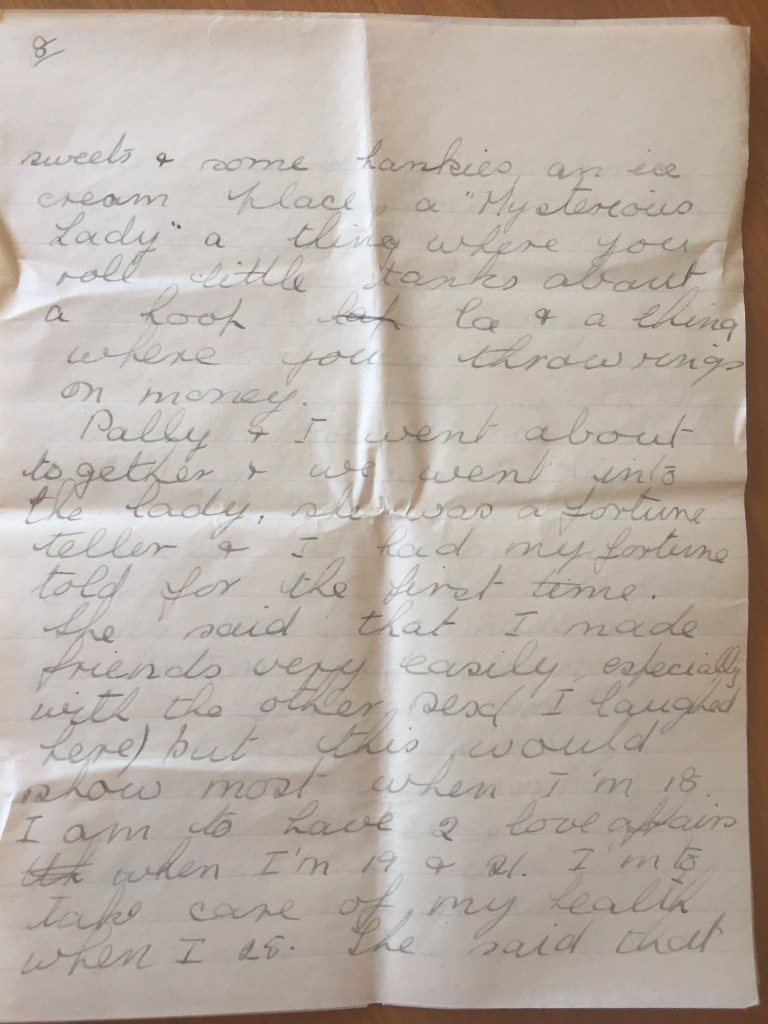 8/
sweets & some hankies, an ice
cream place, a "Mysterious
Lady" a thing where you
roll little tanks about
a hoop la & a thing
where you throw rings
on money.
Pally & I went about
together & we went into
the lady, she was a fortune
teller & I had my fortune
told for the first time.
She said that I made
friends very easily, especially
with the other sex( I laughed
here) but this would
show most when I'm 18.
I am to have 2 love affairs
when I'm 19 & 21. I'm to
take care of my health
when I 28. She said that